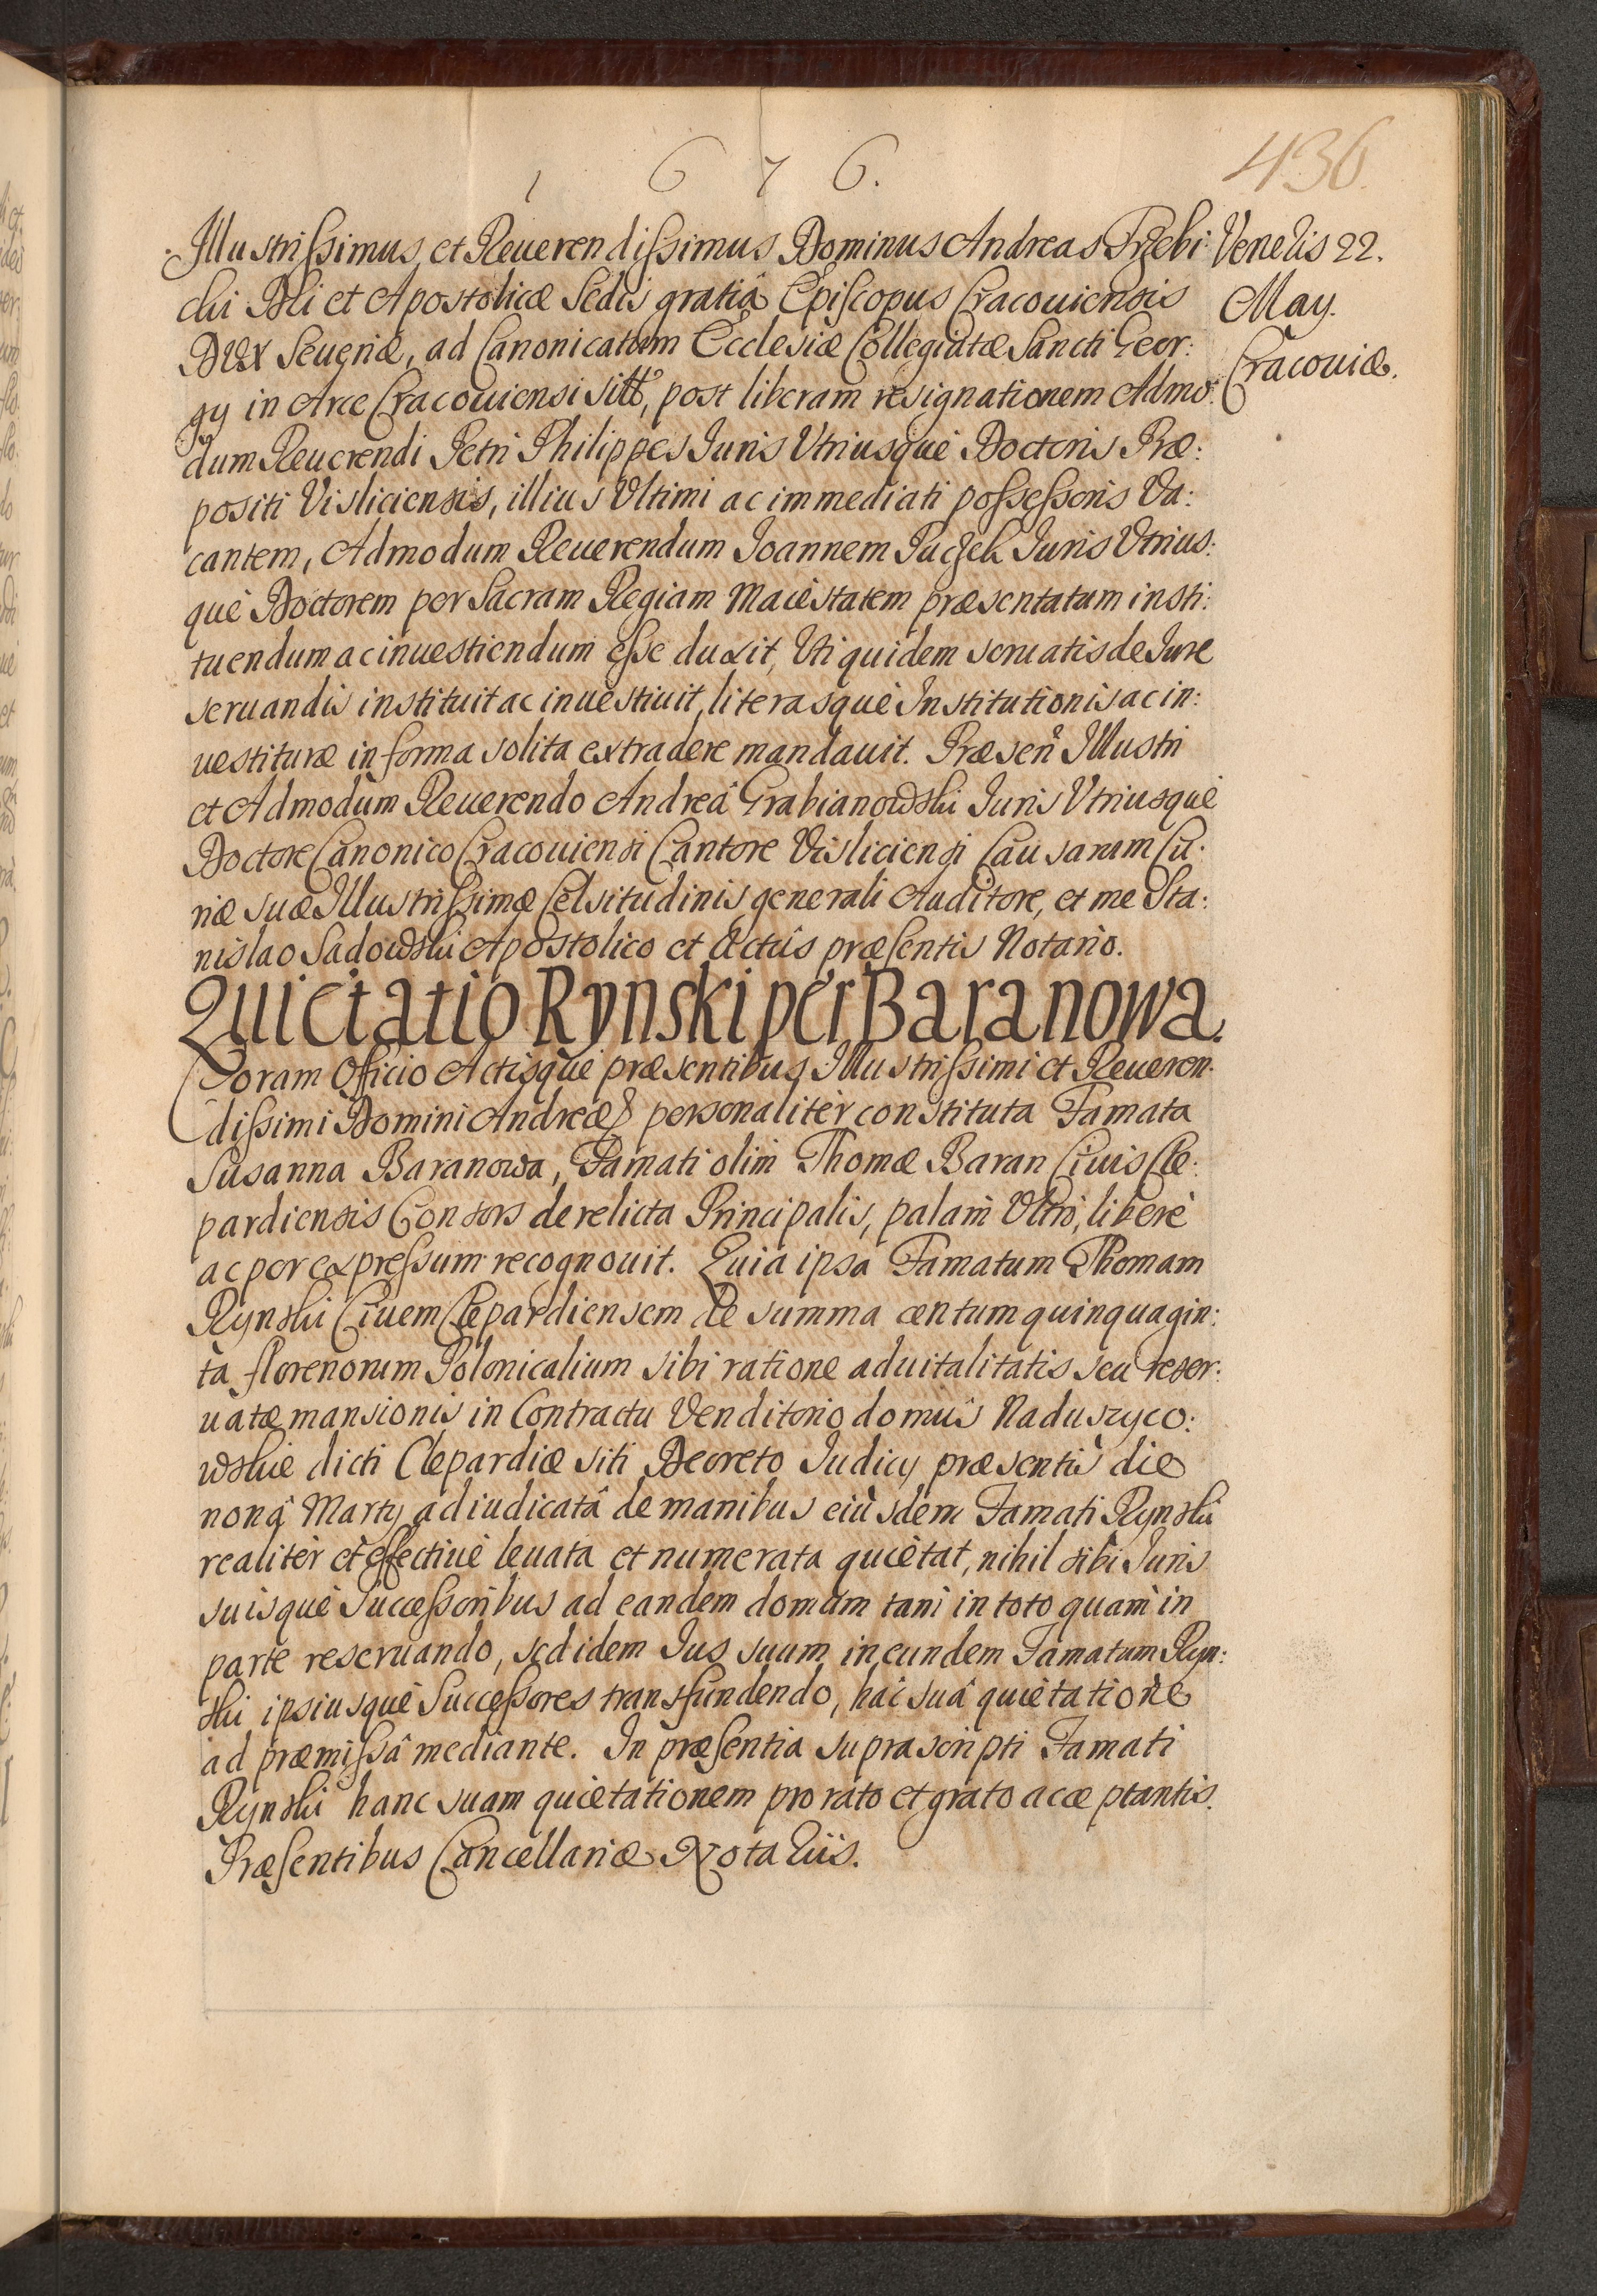 1676.
436.
Illustrissimus et Reuerendissimus Dominus Andreas Trzebi:
cki Dei et Apostolicæ Sedis gratiâ Episcopus Cracouiensis
Dux Seueriæ, ad Canonicatum Ecclesiæ Collegiatæ Sancti Geor:
gÿ in Arce Cracouiensi sitæ, post liberam resignationem Admo:
dum Reuerendi Petri Philippes Iuris Vtriusquè Doctoris Præ:
positi Visliciensis, illius Vltimi ac immediati possessoris Va:
cantem, Admodum Reuerendum Ioannem Puczek Iuris Vtrius:
què Doctorem per Sacram Regiam Maiestatem præsentatum insti:
tuendum ac inuestiendum esse duxit, Vti quidem seruatis de Iure
seruandis instituit ac inuestiuit, literasquè Institutionis ac in:
uestituræ in forma solita extradere mandauit. Præsen Illustri
et Admodum Reuerendo Andreâ Grabianowski Iuris Vtriusquè
Doctore Canonico Cracouiensi Cantore Visliciensi Causarum Cu:
riæ suæ Illustrissimæ Celsitudinis generali Auditore, et me Sta:
nislao Sadowski Apostolico et Actûs præsentis Notario.
Venelis 22.
May.
Cracouiæ.
Quietatio Rynski per Baranowa.
Coram Officio Actisquè præsentibus Illustrissimi et Reueren:
dissimi Domini Andreæ personalitèr constituta Famata
Susanna Baranowa, Famati olim Thomæ Baran Ciuis Cle:
pardiensis Consors derelicta Principalis, palàm Vltrò, liberè
ac per expressum recognouit. Quia ipsa Famatum Thomam
Rynski Ciuem Clepardiensem de summa centum quinquagin:
ta florenorum Polonicalium sibi ratione aduitalitatis seu reser:
uatæ mansionis in Contractu Venditorio domûs Naduszyco:
wskie dicti Clepardiæ siti Decreto Iudicÿ præsentis die
nonâ Martÿ adiudicatâ de manibus eiùsdem Famati Rynski
realitèr et effectiuè leuata et numerata quietat, nihil sibi Iuris
suisquè Successoribus ad eandem domum tam in toto quam in
parte reseruando, sed idem Ius suum in eundem Famatum Ryn:
ski ipsiusquè Successores transfundendo, hac suâ quietatione
ad præmissâ mediante. In præsentia suprascripti Famati
Rynski hanc suam quietationem pro rato et grato acceptantis.
Præsentibus Cancellariæ Notariis.